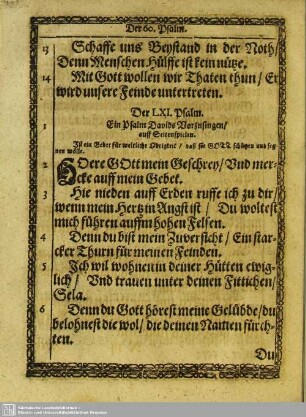 Der 60. Psalm.
13 Schaffe uns Beystand in der Noth/
Denn Menschen Hülffe ist kein nütze.
14 Mit Gott wollen wir Thaten thun/ Er
wird unsere Feinde untertreten.
Der LXI. Psalm.
1 Ein Psalm Davids Vorzusingen/
auff Seitenspielen.
Ist ein Gebet für weltliche Obrigkeit/ daß sie GOTT schützen und seg-
nen wolle.
2 HOere GOtt mein Geschrey/ Vnd mer-
cke auff mein Gebet.
3 Hie nieden auff Erden ruffe ich zu dir/
wenn mein Hertz in Angst ist/ Du woltest
mich führen auff einen hohen Felsen.
4 Denn du bist mein Zuversicht/ Ein star-
cker Thurn für meinen Feinden.
5 Ich wil wohnen in deiner Hütten ewig-
lich/ Vnd trauen unter deinen Fittichen/
Sela.
6 Denn du Gott hörest meine Gelübde/ du
belohnest die wol/ die deinen Namen fürch-
ten.
Du